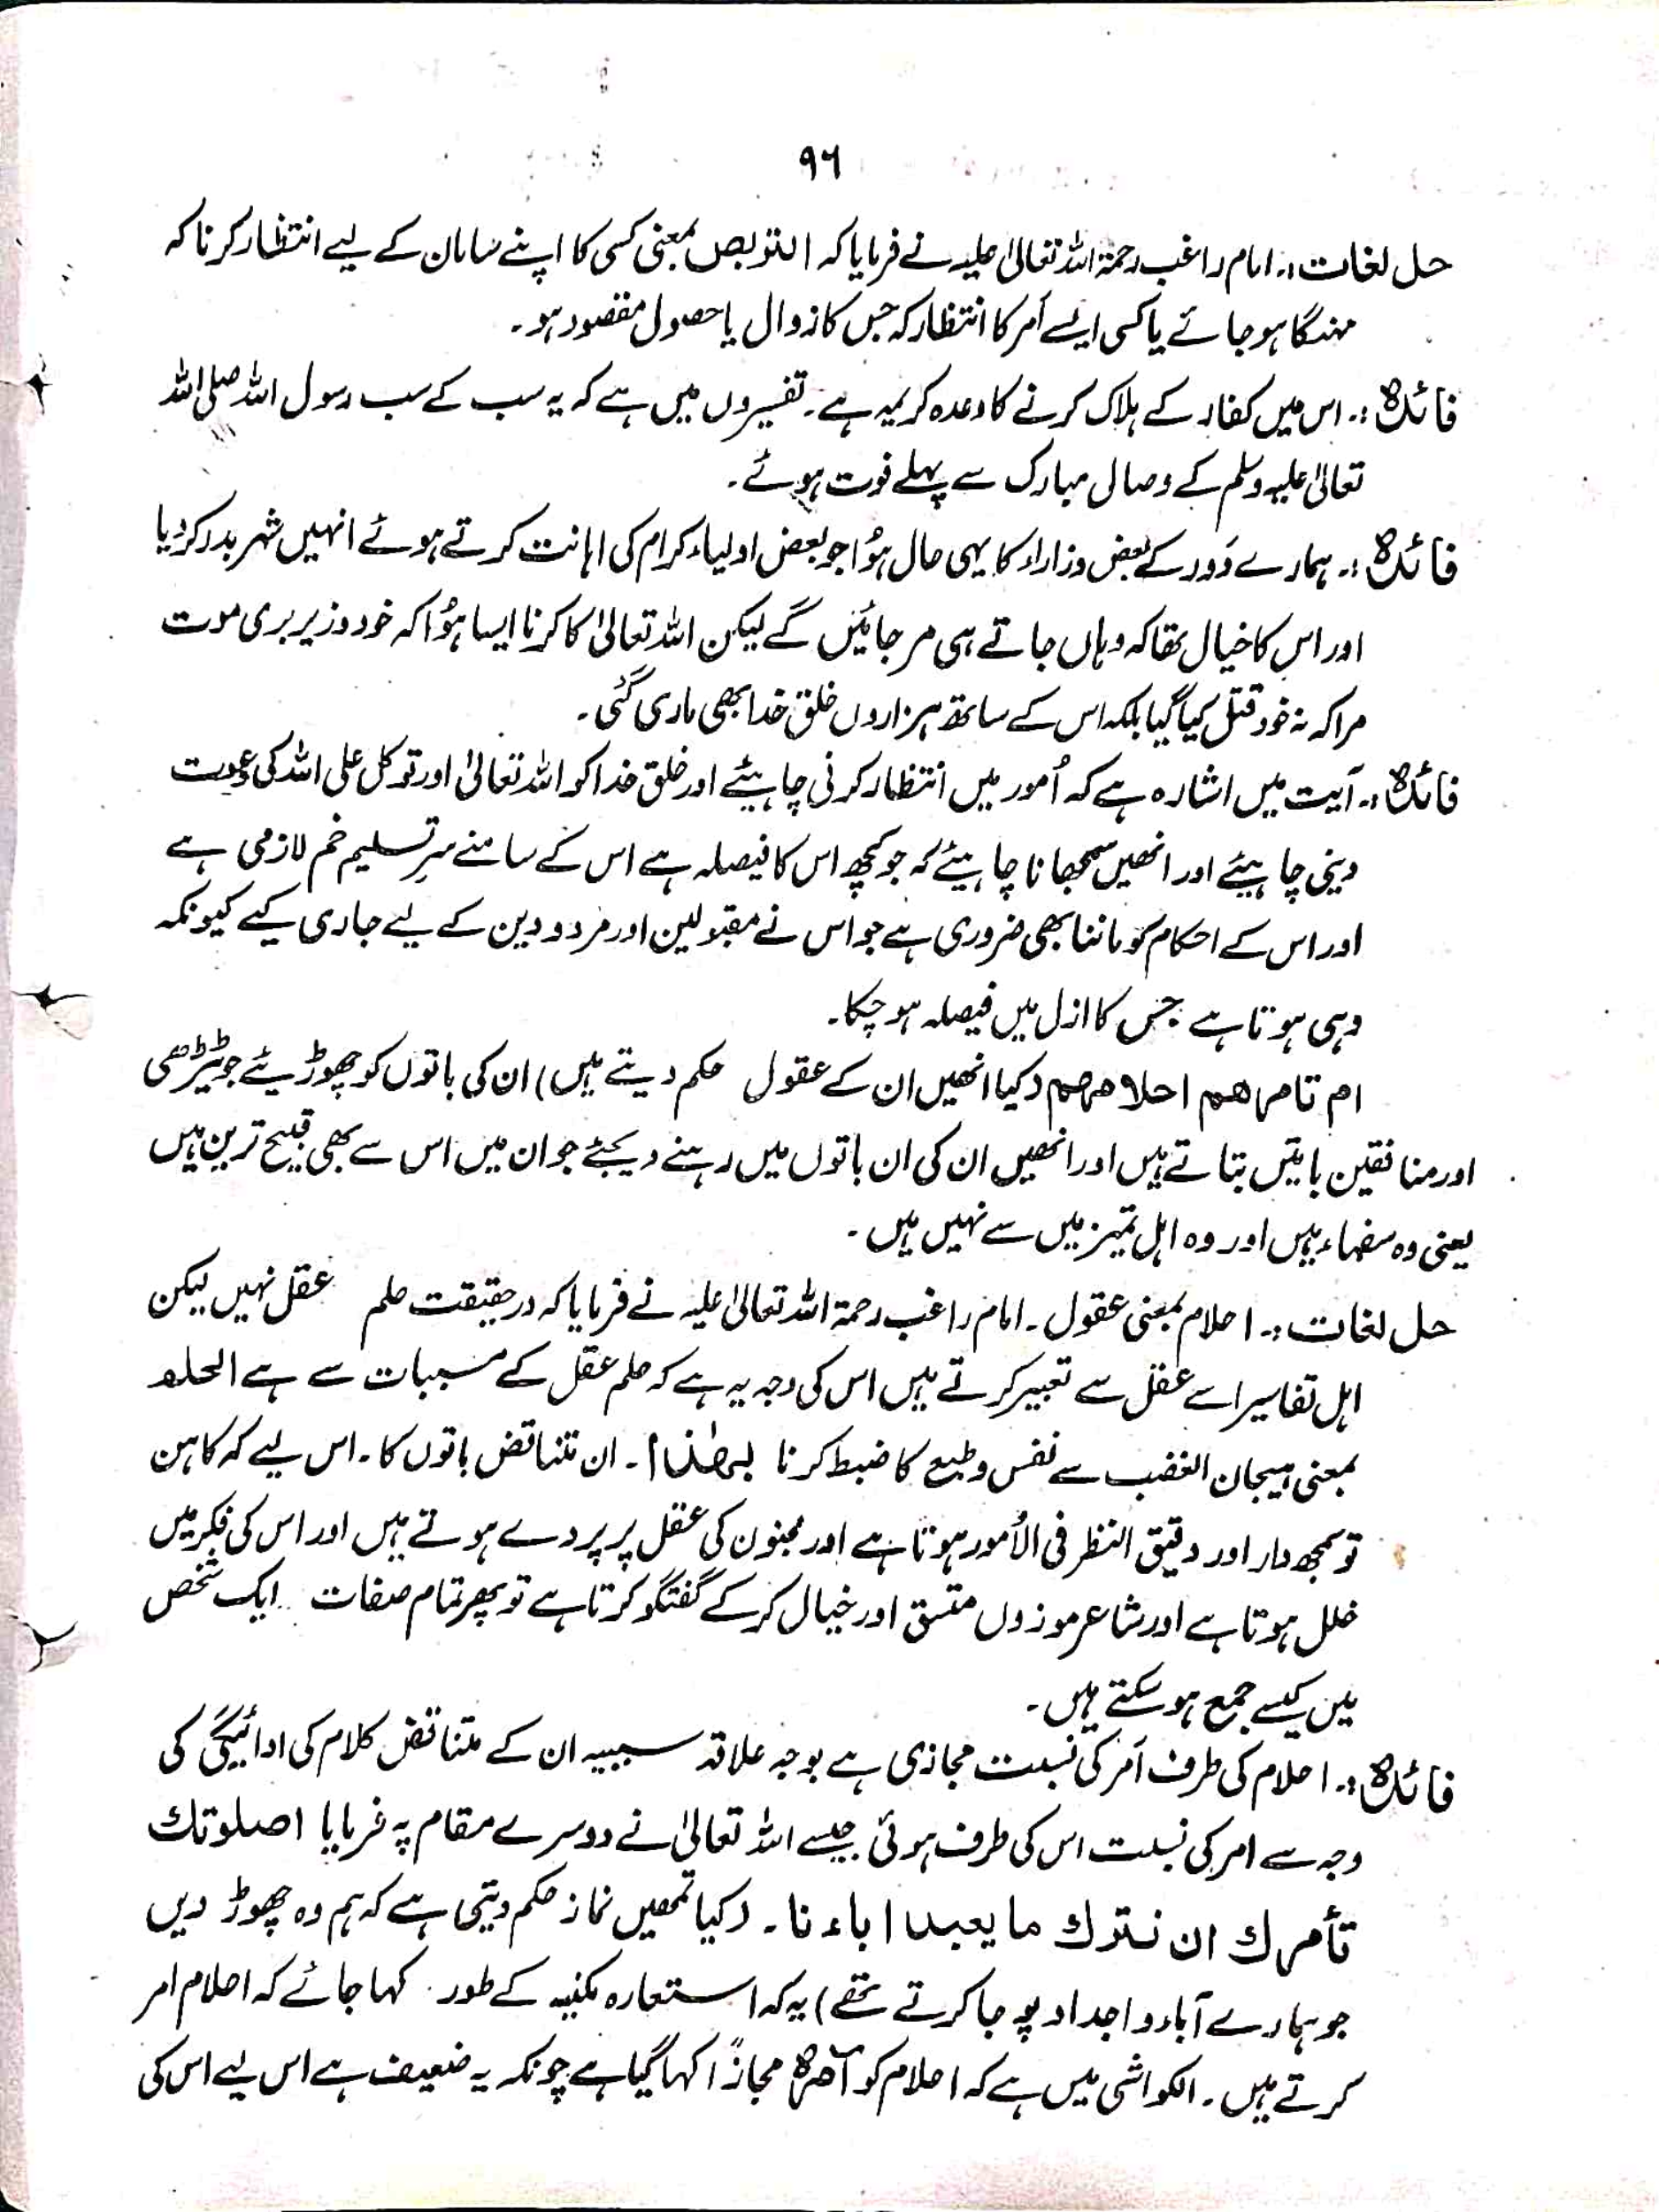 ۹۶
حل لغات :۔ امام راغب رحمۃ اللہ تعالیٰ علیہ نے فرمایا کہ التربص بمعنی کسی کا اپنے سامان کے لیے انتظار کرنا کہ
مہنگا ہو جائے یا کسی ایسے اَمر کا انتظار کہ جس کا زوال یا حصول مقصود ہو ۔
فائدہ :۔ اس میں کفار کے ہلاک کرنے کا وعدہ کریمہ ہے ۔ تفسیروں میں ہے کہ یہ سب کے سب رسول اللہ صلی اللہ
تعالیٰ علیہ وسلم کے وصال مبارک سے پہلے فوت ہوئے ۔
فائدہ :۔ ہمارے دَور کے بعض وزاراء کا یہی حال ہُوا جو بعض اولیاء کرام کی اہانت کرتے ہوئے انہیں شہر بدر کر دیا
اور اس کا خیال تھا کہ وہاں جاتے ہی مر جائیں گے لیکن اللہ تعالیٰ کا کرنا ایسا ہُوا کہ خود وزیر بری موت
مرا کہ نہ خود قتل کیا گیا بلکہ اس کے ساتھ ہزاروں خلق خدا بھی ماری گئی ۔
فائدہ :۔ آیت میں اشارہ ہے کہ اُمور میں انتظار کرنی چاہیئے اور خلق خدا کو اللہ تعالیٰ اور توکل علی اللہ کی دعوت
دینی چاہیئے اور انھیں سمجھانا چاہیئے کہ جو کچھ اس کا فیصلہ ہے اس کے سامنے سرِ تسلیم خم لازمی ہے
اور اس کے احکام کو ماننا بھی ضروری ہے جو اس نے مقبولین اور مردودین کے لیے جاری کیے کیونکہ
وہی ہوتا ہے جس کا ازل میں فیصلہ ہو چکا۔
ام تامرھم احلامھم (کیا انھیں ان کے عقول حکم دیتے ہیں) ان کی باتوں کو چھوڑیئے جو ٹیڑھی
اور منافقین باتیں بتاتے ہیں اور انھیں ان کی ان باتوں میں رہنے دیجئے جو ان میں اس سے بھی قبیح ترین ہیں
یعنی وہ سفہاء ہیں اور وہ اہل تمیز میں سے نہیں ہیں ۔
حل لغات :۔ احلام بمعنی عقول ۔ امام راغب رحمۃ اللہ تعالیٰ علیہ نے فرمایا کہ درحقیقت حلم عقل نہیں لیکن
اہل تفاسیر اسے عقل سے تعبیر کرتے ہیں اس کی وجہ یہ ہے کہ حلم عقل کے مسببات سے ہے الحلم
بمعنی ہیجان الغضب سے نفس و طبع کا ضبط کرنا بھٰذا ۔ ان متناقض باتوں کا ۔ اس لیے کہ کاہن
تو سمجھ دار اور دقیق النظر فی الاُمور ہوتا ہے اور مجنون کی عقل پر پردے ہوتے ہیں اور اس کی فکر میں
خلل ہوتا ہے اور شاعر موزوں متسق اور خیال کر کے گفتگو کرتا ہے تو پھر تمام صفات ایک شخص
میں کیسے جمع ہو سکتے ہیں ۔
فائدہ :۔ احلام کی طرف اَمر کی نسبت مجازی ہے بوجہ علاقہ سببیہ ان کے متناقض کلام کی ادائیگی کی
وجہ سے امر کی نسبت اس کی طرف ہوئی جیسے اللہ تعالیٰ نے دوسرے مقام پہ فرمایا اصلوتك
تأمرك ان نترك ما يعبد اباءنا ۔ (کیا تمھیں نماز حکم دیتی ہے کہ ہم وہ چھوڑ دیں
جو ہمارے آباء و اجداد پوجا کرتے تھے) یہ کہ استعارہ مکنیہ کے طور کہا جائے کہ احلام امر
کرتے ہیں ۔ الکواشی میں ہے کہ احلام کو آمرہ مجازًا کہا گیا ہے چونکہ یہ ضعیف ہے اس لیے اس کی